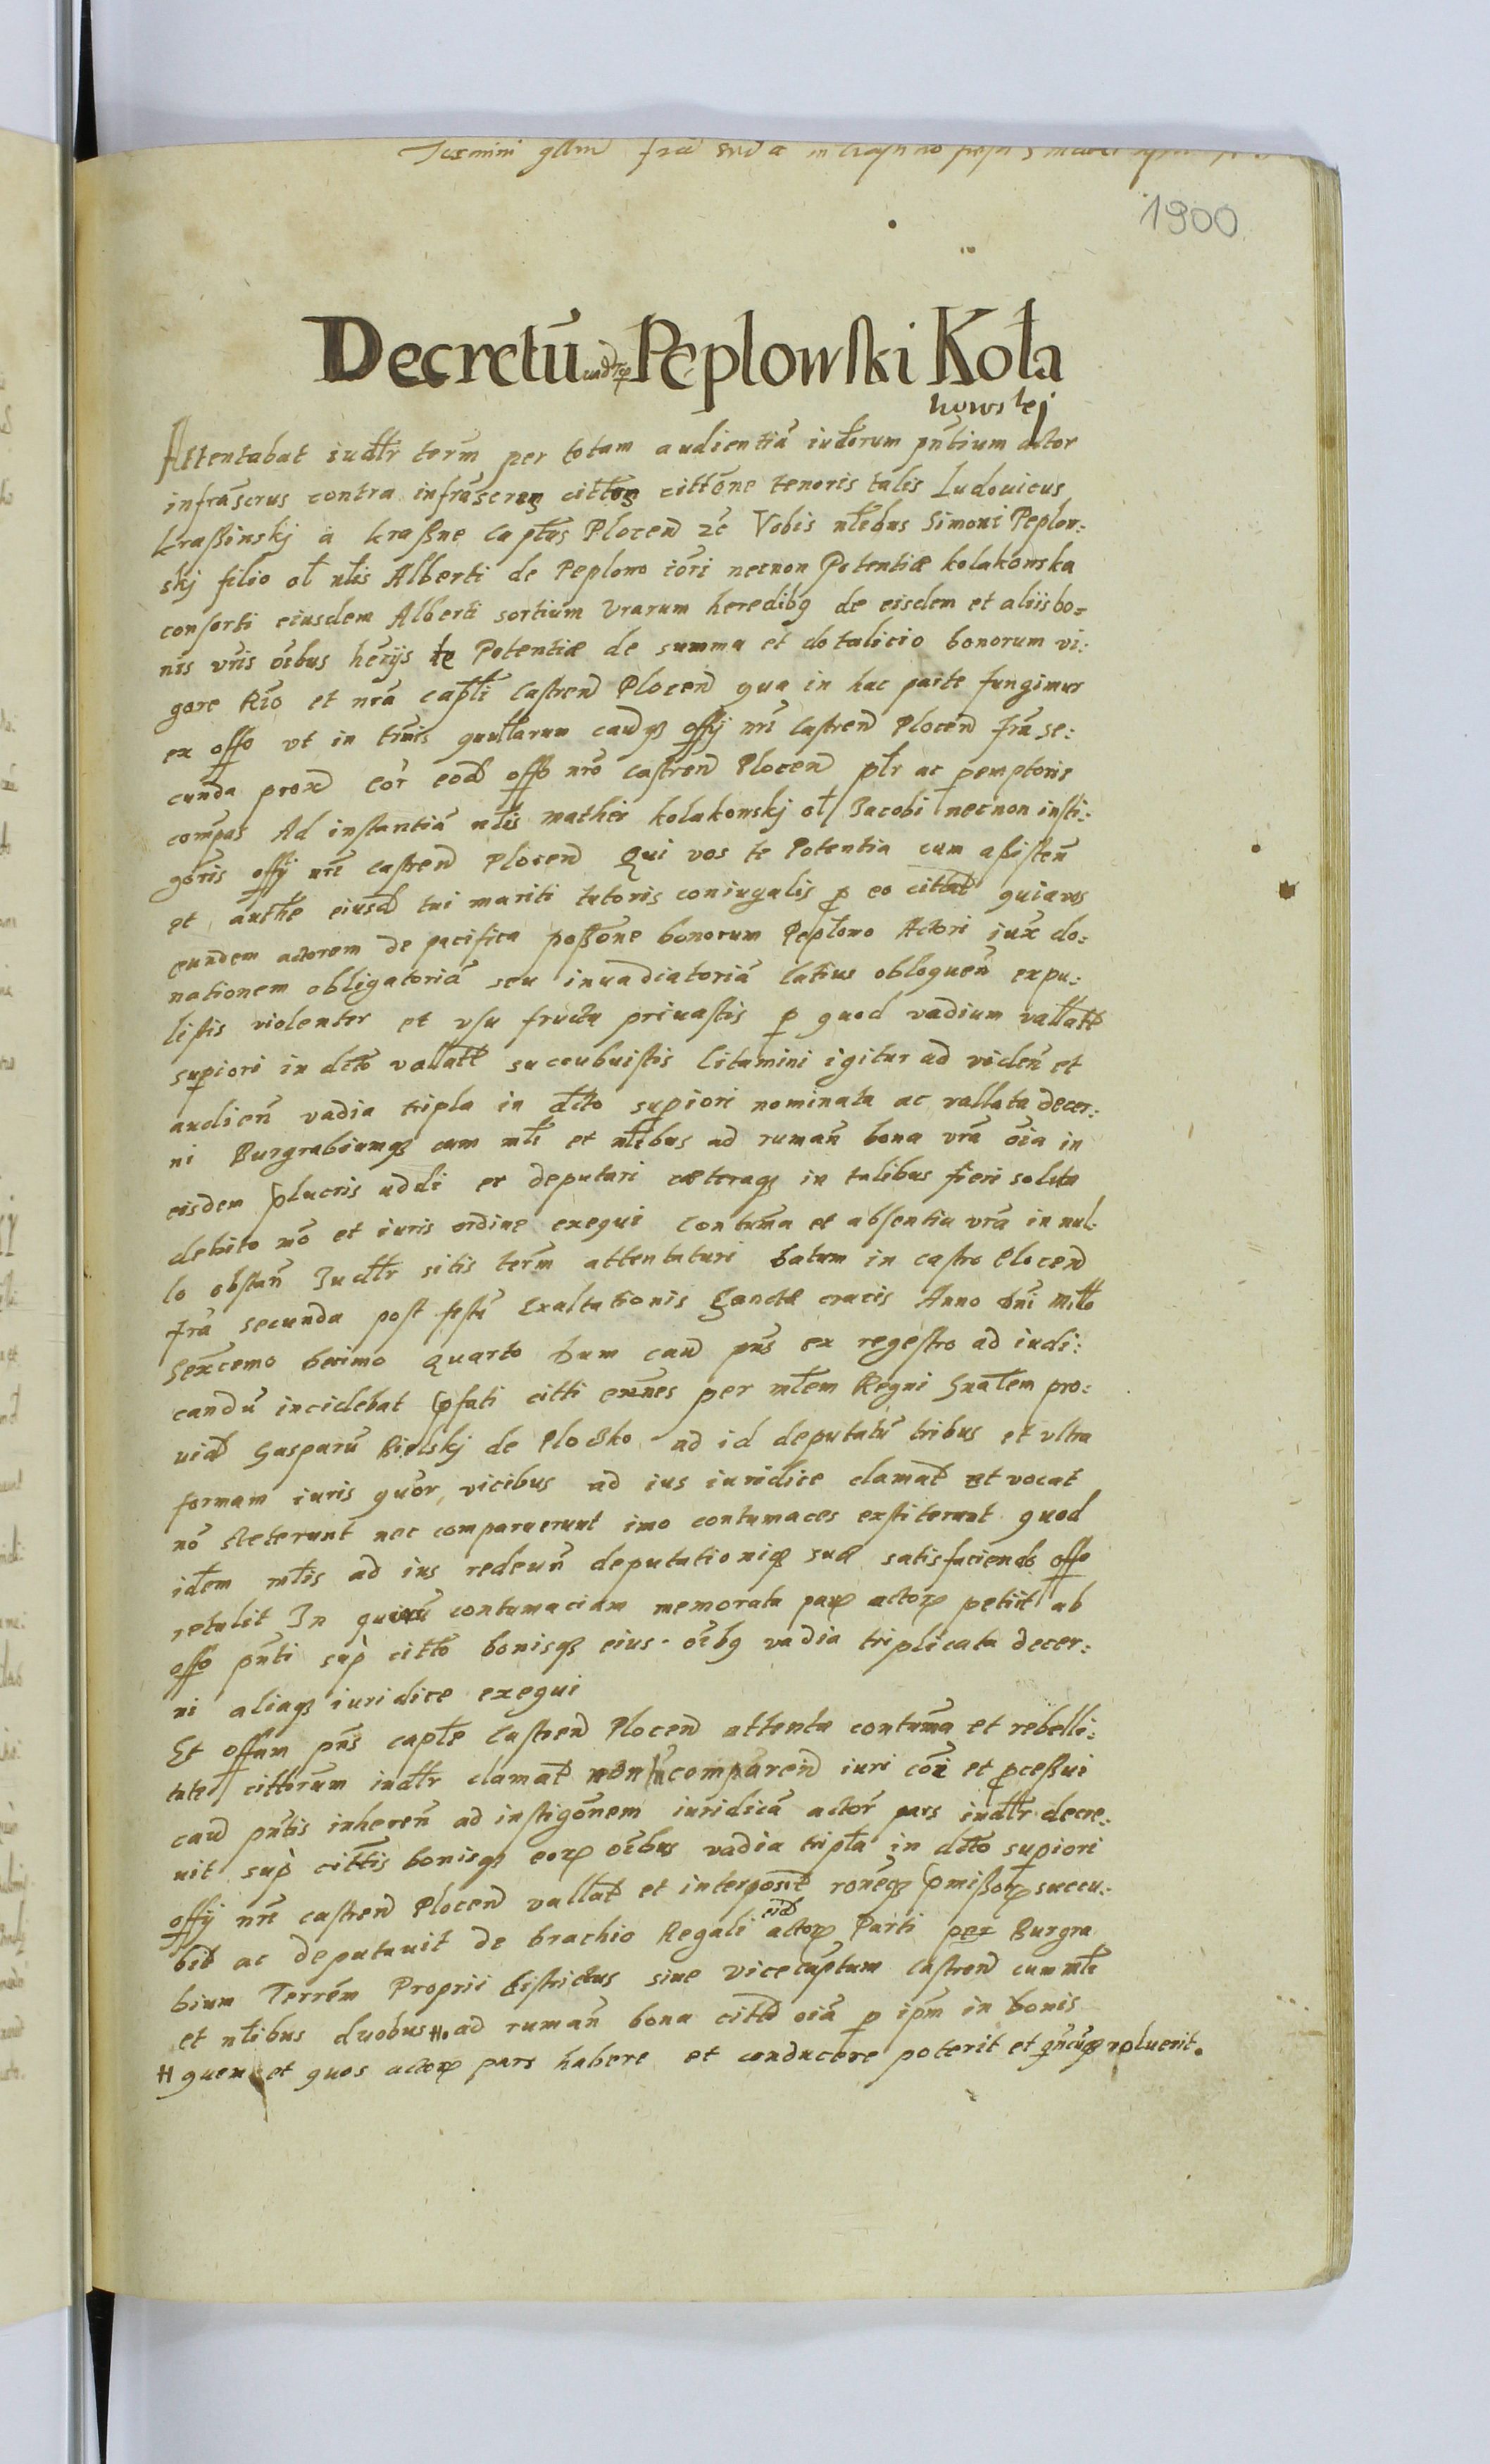 1900
Decretū vadior Peplowski Koła
kowskj
Attentabat iudlr term per totam audientiā iudiorum pntium actor
infrascrus contra infrascros cittos cittone tenoris talis Ludouicus
Kraßinskj a Kraßne Captus Plocen 2c Vobis nlibus Simoni Peplow:
skj filio ol nlis Alberti de Peplowo iori necnon Potentiæ Kolakowska
consorti eiusdem Alberti sortium vrarum heredibg de eisdem et aliis bo=
nis vris oibus herijs te Potentiæ de summa et dotalicio bonorum vi:
gore Rio et nra captli Castren Plocen qua in hac parte fungimur
ex offo vt in tmis qurlarum caudqs offij nri Castren Plocen fria se:
cunda prox cor eod offo nro castren Plocen plr ac pemptoris
compas Ad instantiā nlis Mathiæ Kolakowskj ol Jacobi necnon insti:
goris offij nri castren Plocen Qui vos te Potentia cum aßisten
et authe eiusd tui mariti tutoris coniugalis p eo cittat quia vos
eundem actorem de pacifica poßone bonorum Peplowo Actori iux do:
nationem obligatoriā seu inuadiatoriā latius obloquen expu:
listis violenter et vsu fructu priuastis p quod vadium vallatt
supiori in dcto vallatt succubuistis Citamini igitur ad viden et
audien vadia tripla in dcto supiori nominata ac vallata decer:
ni Burgrabiumqs cum mli et nlibus ad ruman bona vra oia in
eisdem plucris addi et deputari cæteraqs in talibus fieri solita
debito mō et iuris ordine exequi Contuma et absentia vra in nul:
lo obstan Judlr sitis term attentaturi Datum in castro Plocen
fria secunda post festū Exaltationis Sanctæ crucis Anno dni Millo
Sexcemo Decimo Quarto Dum cau pns ex regestro ad iudi:
candū incidebat pfati citti exnes per mlem Regni Gnalem pro:
uid Gasparū Bielskj de Plocko ad id deputatū tribus et vltra
formam iuris quor vicibus ad ius iuridice clamat et vocat
nō steterunt nec comparuerunt imo contumaces exstiterunt quod
idem mlis ad ius redeun deputationiqs suæ satisfaciendo offo
retulit In quorū contumaciam memorata pars actor petiit ab
offo pnti sup citto bonisqs eius oibg vadia triplicata decer:
ni aliaqs iuridice exequi
Et offum pns captle Castren Plocen attenta contuma et rebelli:
tate cittorum iudlr clamat non comparen iuri coi et pceßui
cau pntis inheren ad instigonem iuridicā actor pars iudlr decre:
uit sup cittis bonisqs eor oibus vadia tripla in dcto supiori
offij nri castren Plocen vallat et interposit roneqs pmißor succu:
bit ac deputauit de brachio Regali eid actor Parti per Burgra
bium Terrem Proprii Districtus siue Vicecaptum Castren cum mli
et nlibus duobus # ad ruman bona citto oia p ipm in bonis
# quem et quos actor pars habere et conducere poterit et quicuqs voluerit.